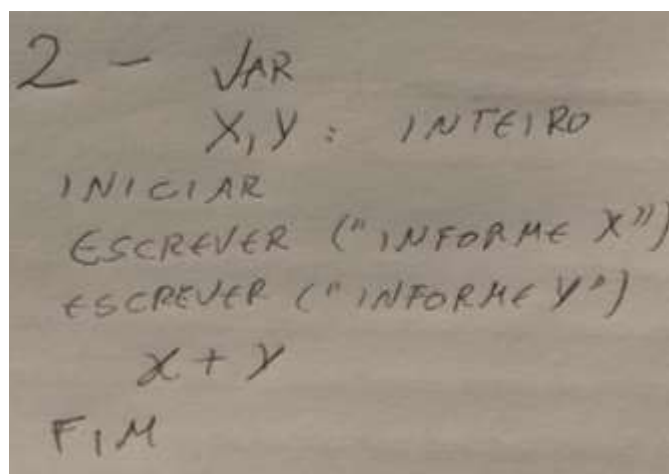 2 - VAR
X, Y : INTEIRO
INICIAR
ESCREVER ("INFORME X")
ESCREVER ("INFORME Y")
X + Y
FIM